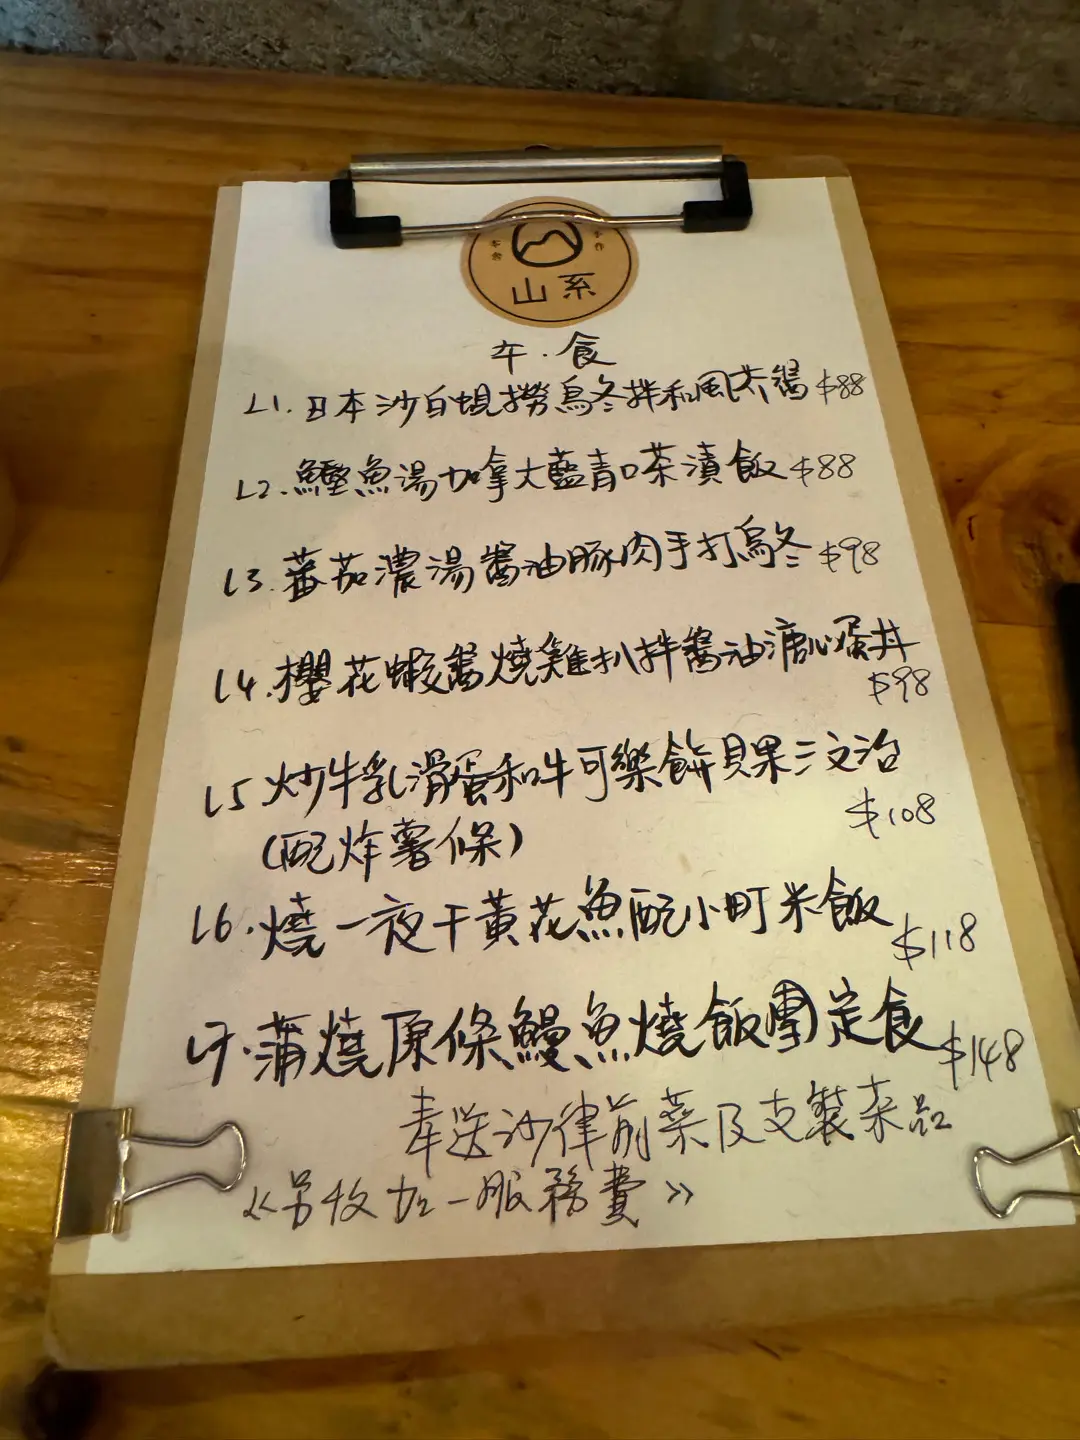 山系
午.食
L1.日本沙白蜆撈烏冬拌和風汁醬 $88
L2.鰹魚湯加拿大藍青口茶漬飯 $88
L3.蕃茄濃湯醬油豚肉手打烏冬 $98
L4.櫻花蝦醬燒雞扒拌醬油溏心蛋丼
$98
L5炒牛乳滑蛋和牛可樂餅貝果三文治
$108
(配炸薯條)
L6.燒一夜干黃花魚配小町米飯
$118
L7.蒲燒原條鰻魚燒飯團定食
$148
奉送沙律前菜及支裝茶品
《另收加一服務費》